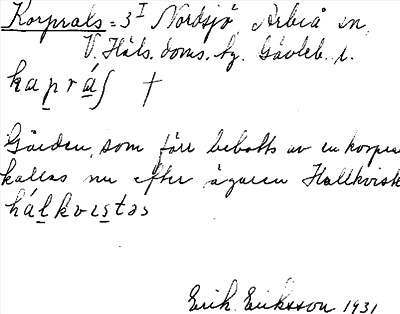 Korprals = 3 I Nordsjö, Arbrå sn,
V. Häls. doms. hg. Gävleb. l.
kaprás †
Gården, som förr bebotts av en korpral
kallas nu efter ägaren Hallkvist
hálkvɪstəs
Erik Eriksson 1931